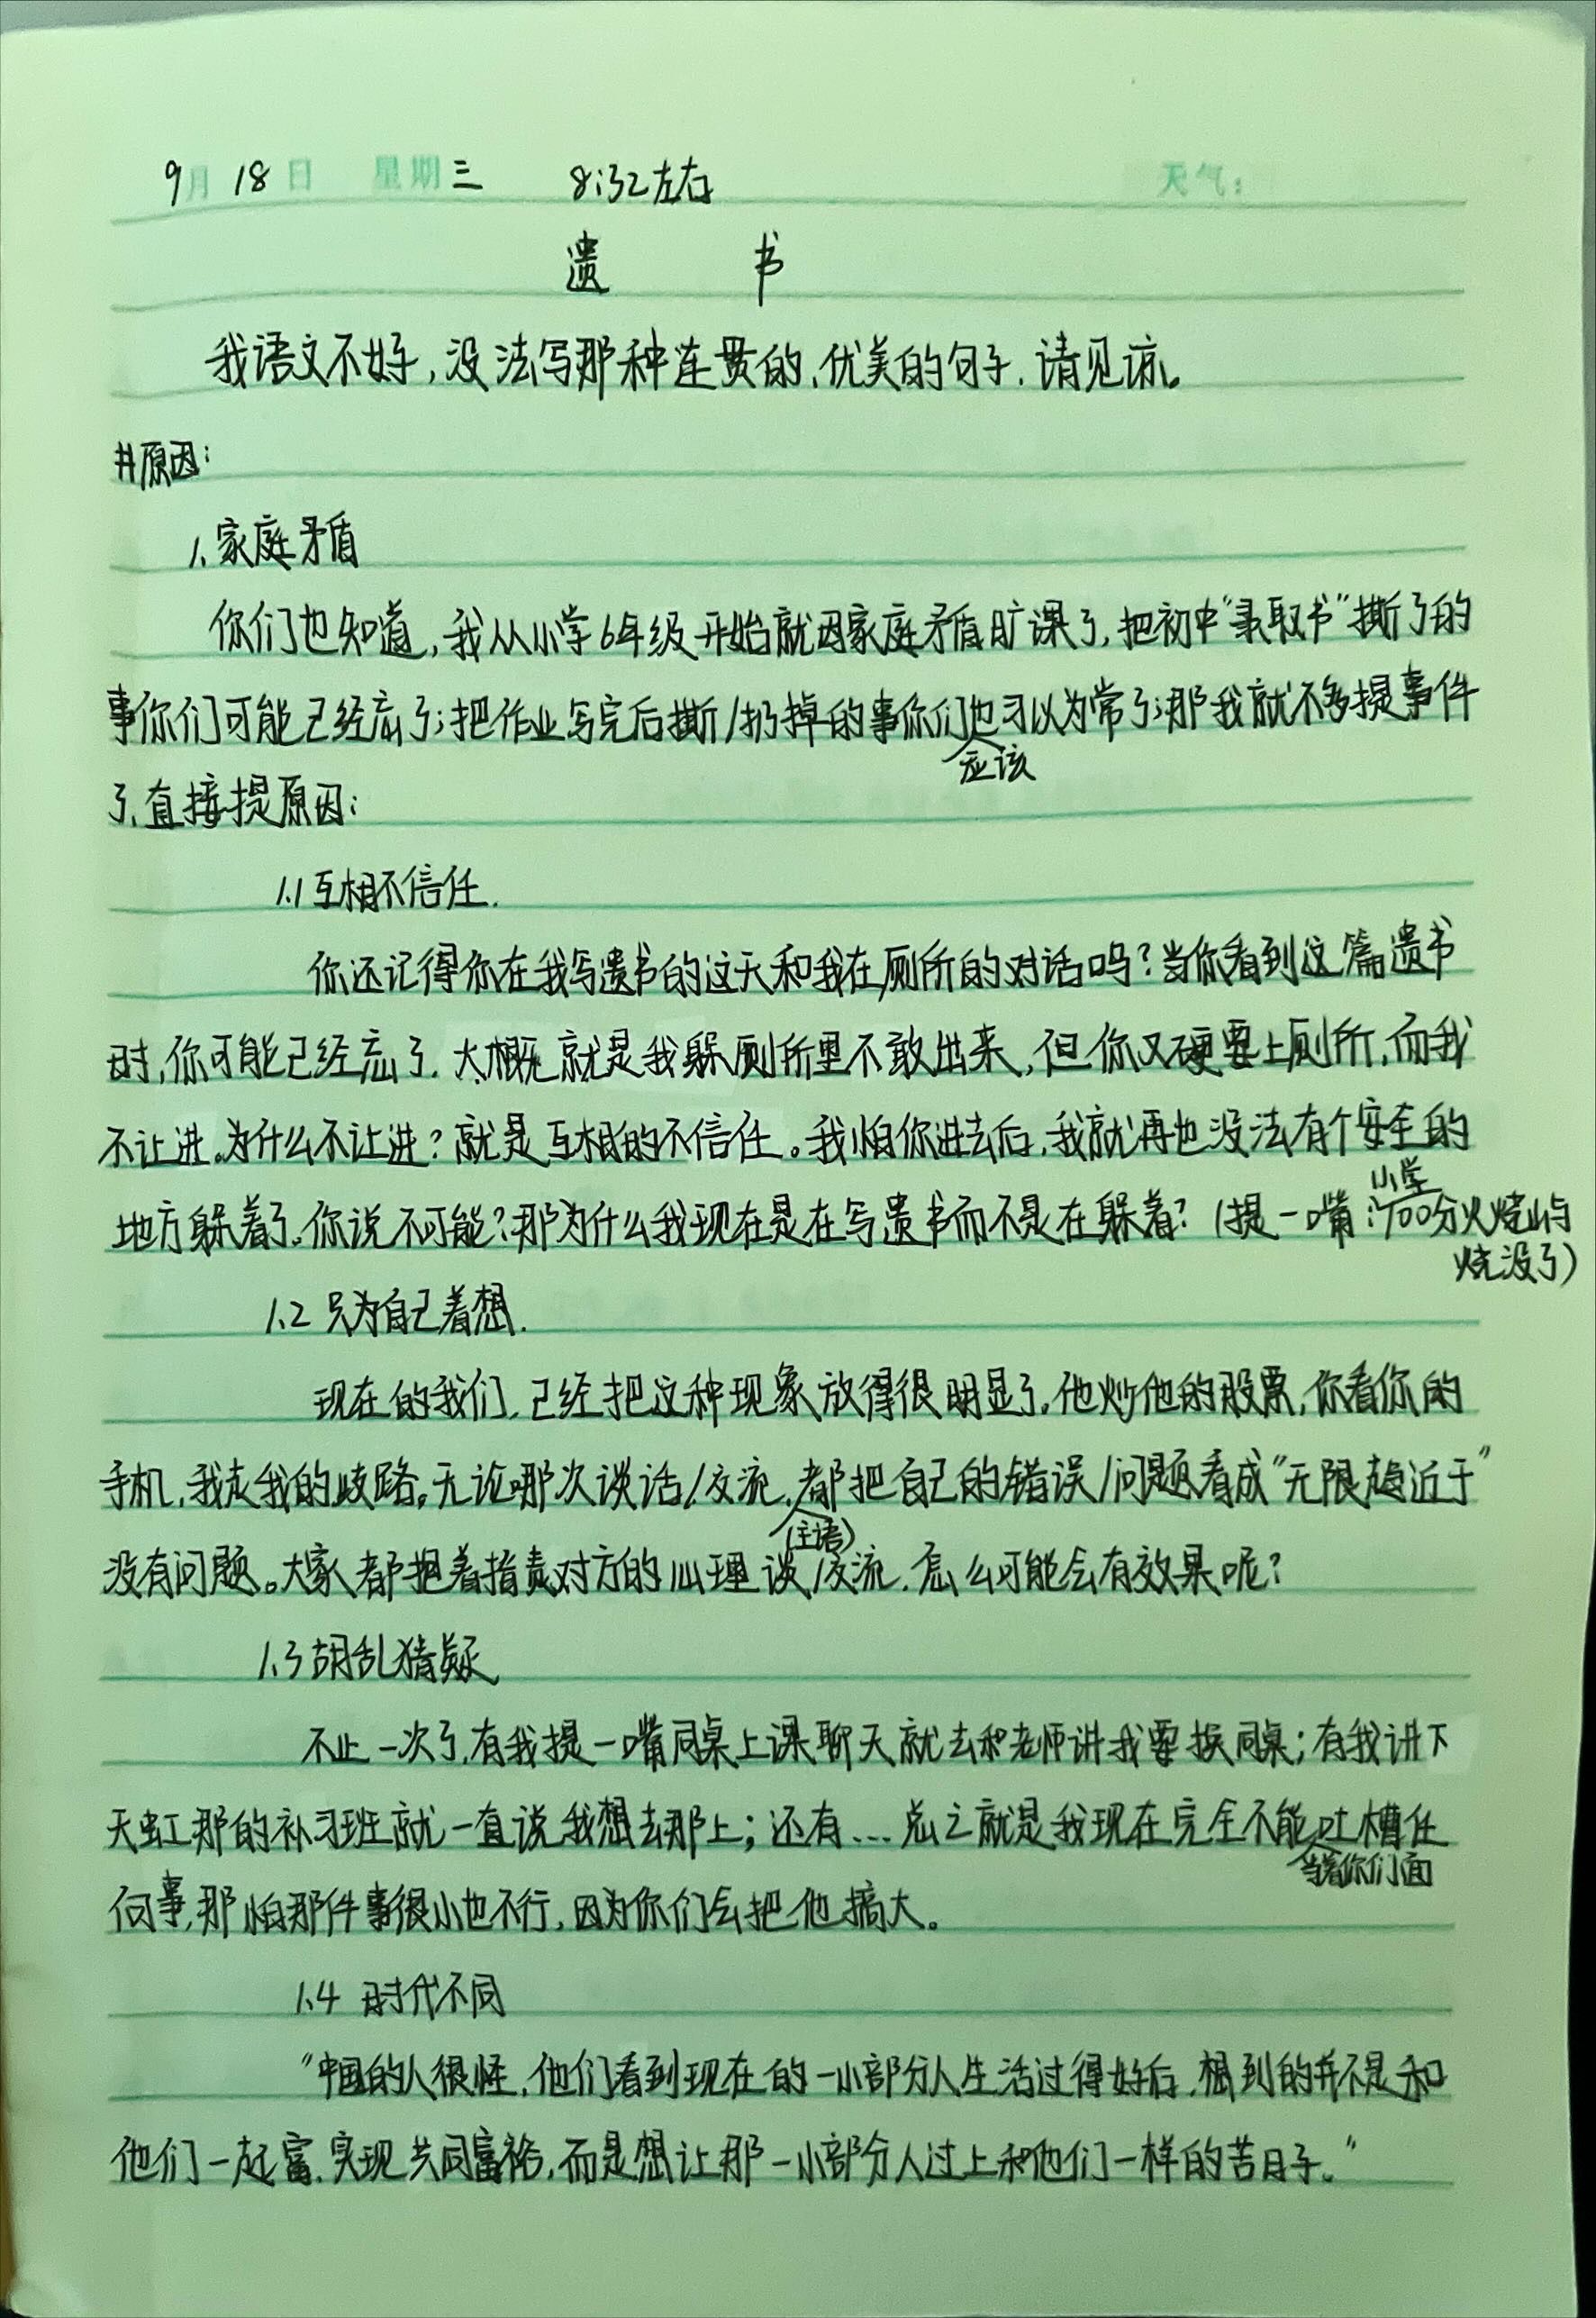 9月18日 星期三 8:32左右 天气:
遗 书
我语文不好,没法写那种连贯的、优美的句子,请见谅。
#原因:
1.家庭矛盾
你们也知道,我从小学6年级开始就因家庭矛盾旷课了,把初中“录取书”撕了的
事你们可能已经忘了;把作业写完后撕/扔掉的事你们应该也习以为常了;那我就不多提事件
了,直接提原因:
1.1互相不信任.
你还记得你在我写遗书的这天和我在厕所的对话吗?当你看到这篇遗书
时,你可能已经忘了,大概就是我躲厕所里不敢出来,但你又硬要上厕所,而我
不让进。为什么不让进?就是互相的不信任。我怕你进去后,我就再也没法有个安全的
地方躲着了。你说不可能?那为什么我现在是在写遗书而不是在躲着?(提一嘴:小学700分火烧屿
烧没了)
1.2 只为自己着想.
现在的我们,已经把这种现象放得很明显了,他炒他的股票,你看你的
手机,我走我的歧路。无论哪次谈话/交流,(主语)都把自己的错误/问题看成“无限趋近于”
没有问题。大家都抱着指责对方的心理谈/交流,怎么可能会有效果呢?
1.3胡乱猜疑
不止一次了,有我提一嘴同桌上课聊天就去和老师讲我要换同桌;有我讲下
天虹那的补习班就一直说我想去那上;还有...总之就是我现在完全不能当着你们面吐槽任
何事,那怕那件事很小也不行,因为你们会把他搞大。
1.4 时代不同
“中国的人很怪,他们看到现在的一小部分人生活过得好后,想到的并不是和
他们一起富,实现共同富裕,而是想让那一小部分人过上和他们一样的苦日子。”